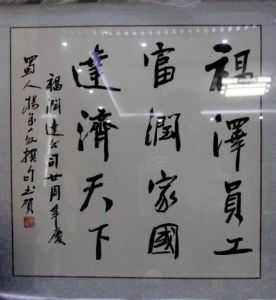 福澤員工
富潤家國
達濟天下
福潤達公司廿周年慶
蜀人楊
撰句书贺